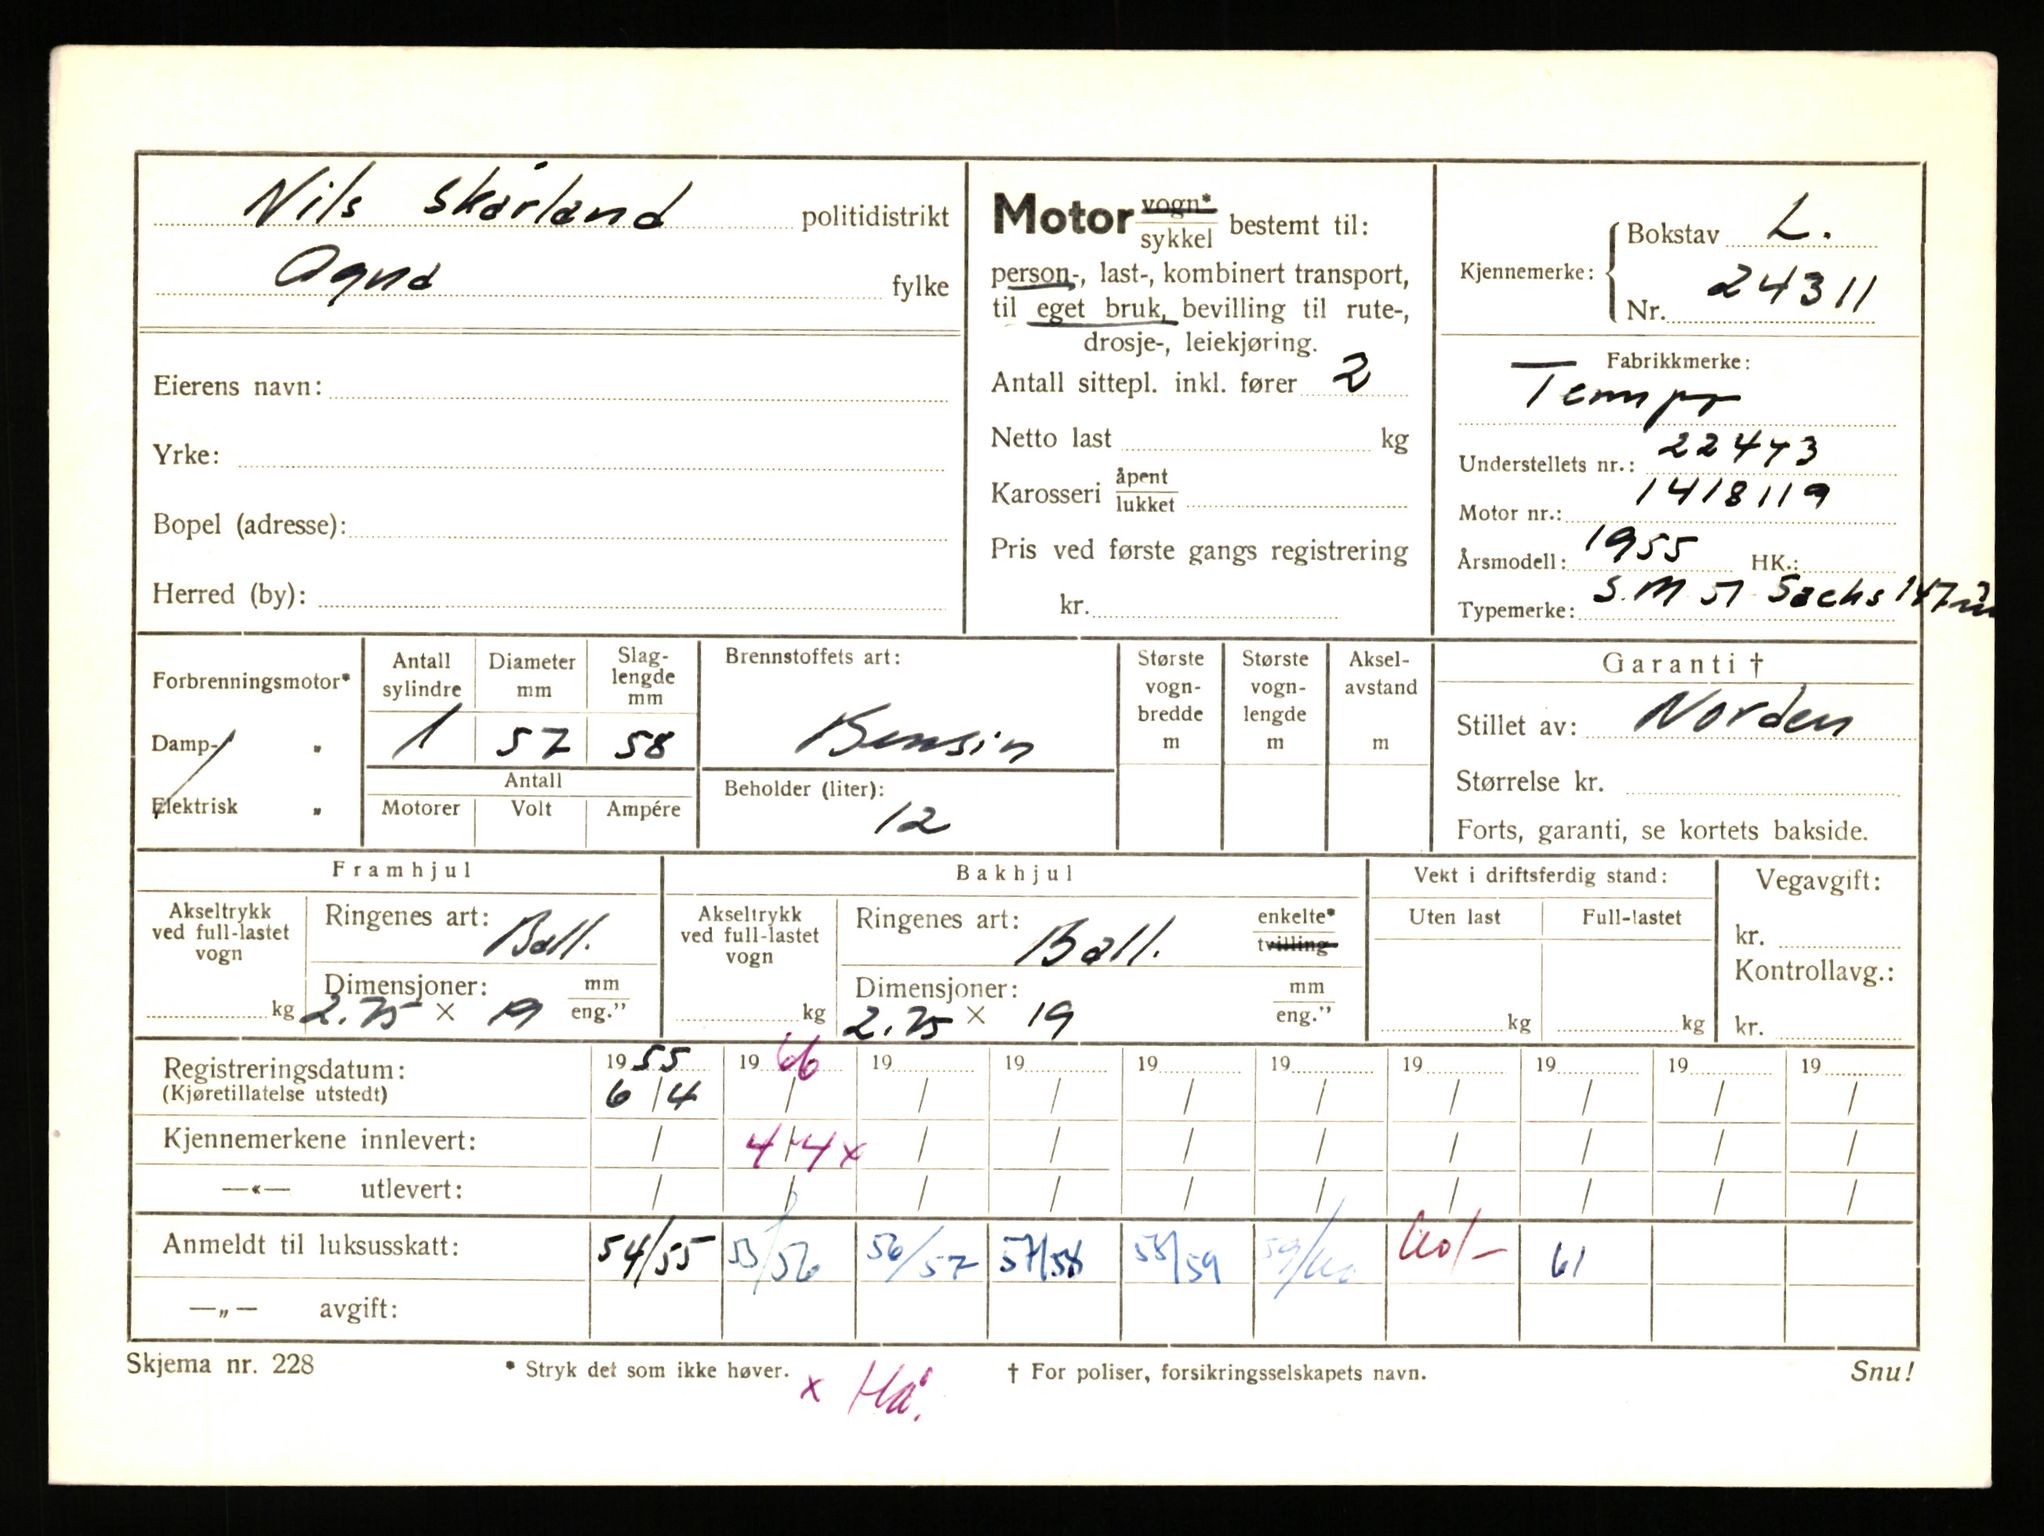 Nils Skårland politidistrikt
Ogna fylke
Eierens navn:
Yrke:
Bopel (adresse):
Herred (by):
Motor vogn* sykkel bestemt til:
person-, last-, kombinert transport,
til eget bruk, bevilling til rute-,
drosje-, leiekjøring.
Antall sittepl. inkl. fører 2
Netto last kg
Karosseri åpent lukket
Pris ved første gangs registrering
kr.
Kjennemerke: Bokstav L.
Nr. 24311
Fabrikkmerke:
Tempo
Understellets nr.: 22473
Motor nr.: 1418119
Årsmodell: 1955 HK.:
Typemerke: S.M 57 Sachs 147
Forbrenningsmotor*
Damp- „
Elektrisk „
Antall sylindre
1
Diameter mm
57
Slag-lengde mm
58
Antall
Motorer Volt Ampére
Brennstoffets art:
Bensin
Beholder (liter):
12
Største vogn-bredde m
Største vogn-lengde m
Aksel-avstand m
Garanti †
Stillet av: Norden
Størrelse kr.
Forts, garanti, se kortets bakside.
Framhjul
Akseltrykk ved full-lastet vogn
kg
Ringenes art: Ball.
Dimensjoner: mm eng."
2.75 × 19
Bakhjul
Akseltrykk ved full-lastet vogn
kg
Ringenes art: Ball. enkelte* tvilling
Dimensjoner: mm eng."
2.75 × 19
Vekt i driftsferdig stand:
Uten last Full-lastet
kg kg
Vegavgift:
kr.
Kontrollavg.:
kr.
Registreringsdatum: 1955 1966 19 19 19 19 19 19 19 19
(Kjøretillatelse utstedt) 6/4 / / / / / / / / /
Kjennemerkene innlevert: / 4/4 x / / / / / / / /
—«— utlevert: / / / / / / / / / /
Anmeldt til luksusskatt: 54/55 55/56 56/57 57/58 58/59 59/60 60/- 61
—„— avgift:
Skjema nr. 228 * Stryk det som ikke høver. † For poliser, forsikringsselskapets navn. Snu!
x Hå.